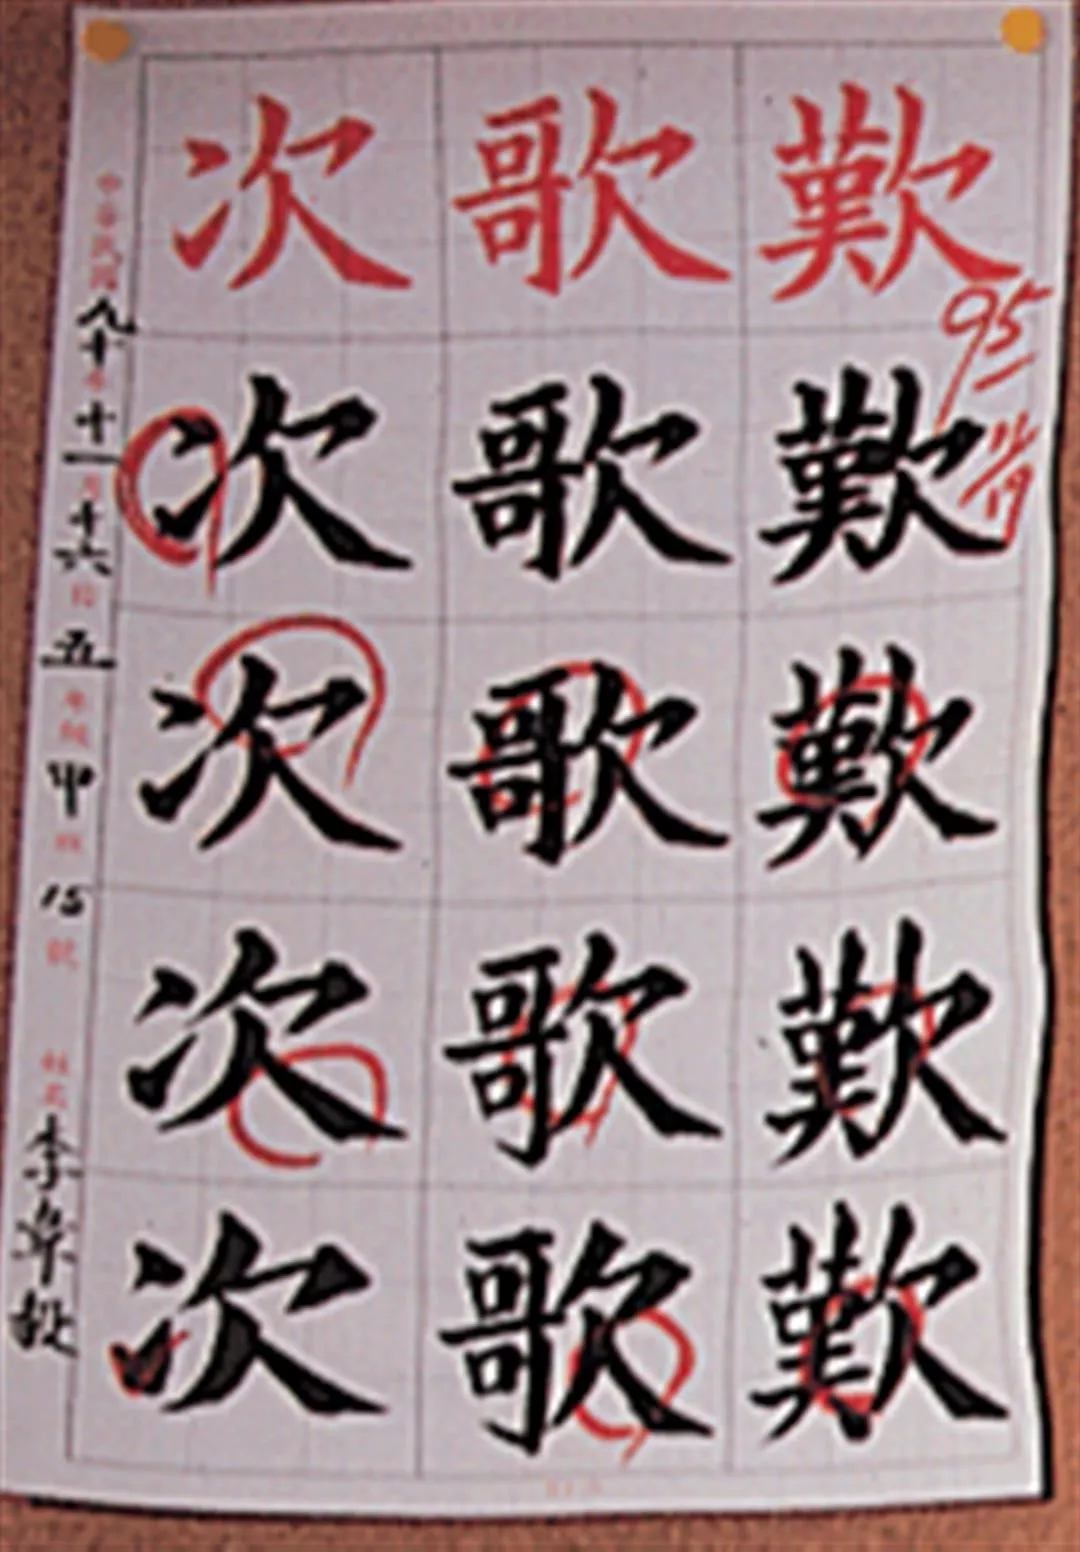 歎歎歎歎歎
歌歌歌歌歌
次次次次次
中華民國九十年十一月十六日五年級甲班15號 姓名李
95
11/19